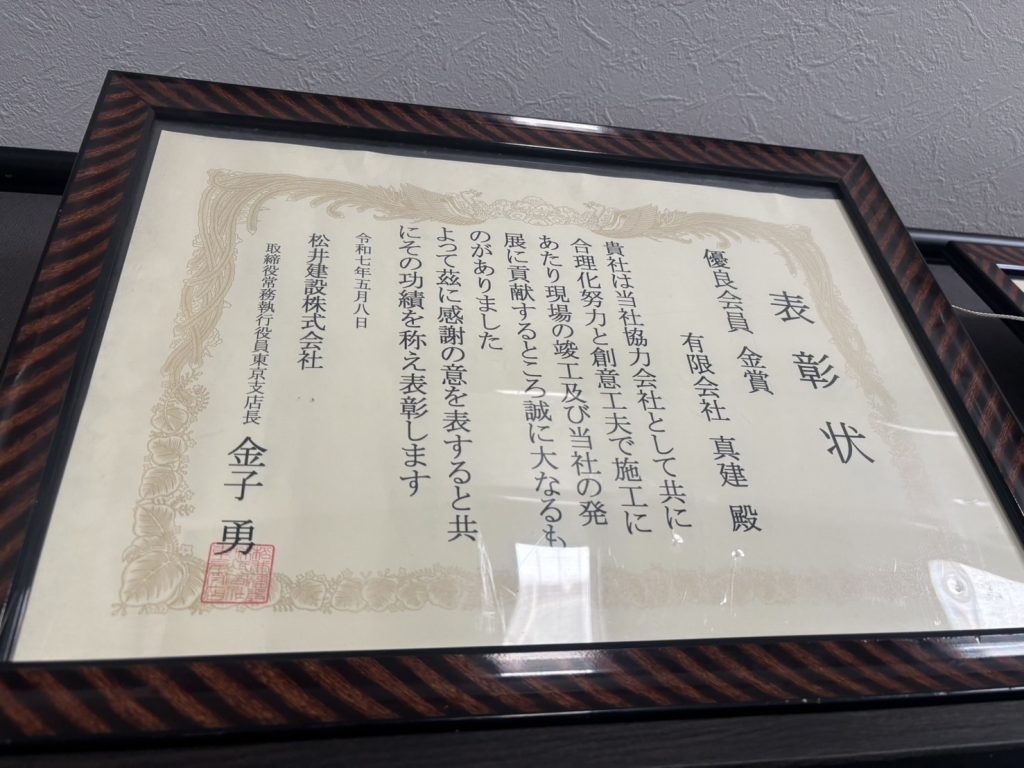 表彰状
優良会員 金賞
有限会社 真建 殿
貴社は当社協力会社として共に
合理化努力と創意工夫で施工に
あたり現場の竣工及び当社の発
展に貢献するところ誠に大なるも
のがありました
よって茲に感謝の意を表すると共
にその功績を称え表彰します
令和七年五月八日
松井建設株式会社
取締役常務執行役員東京支店長 金子 勇